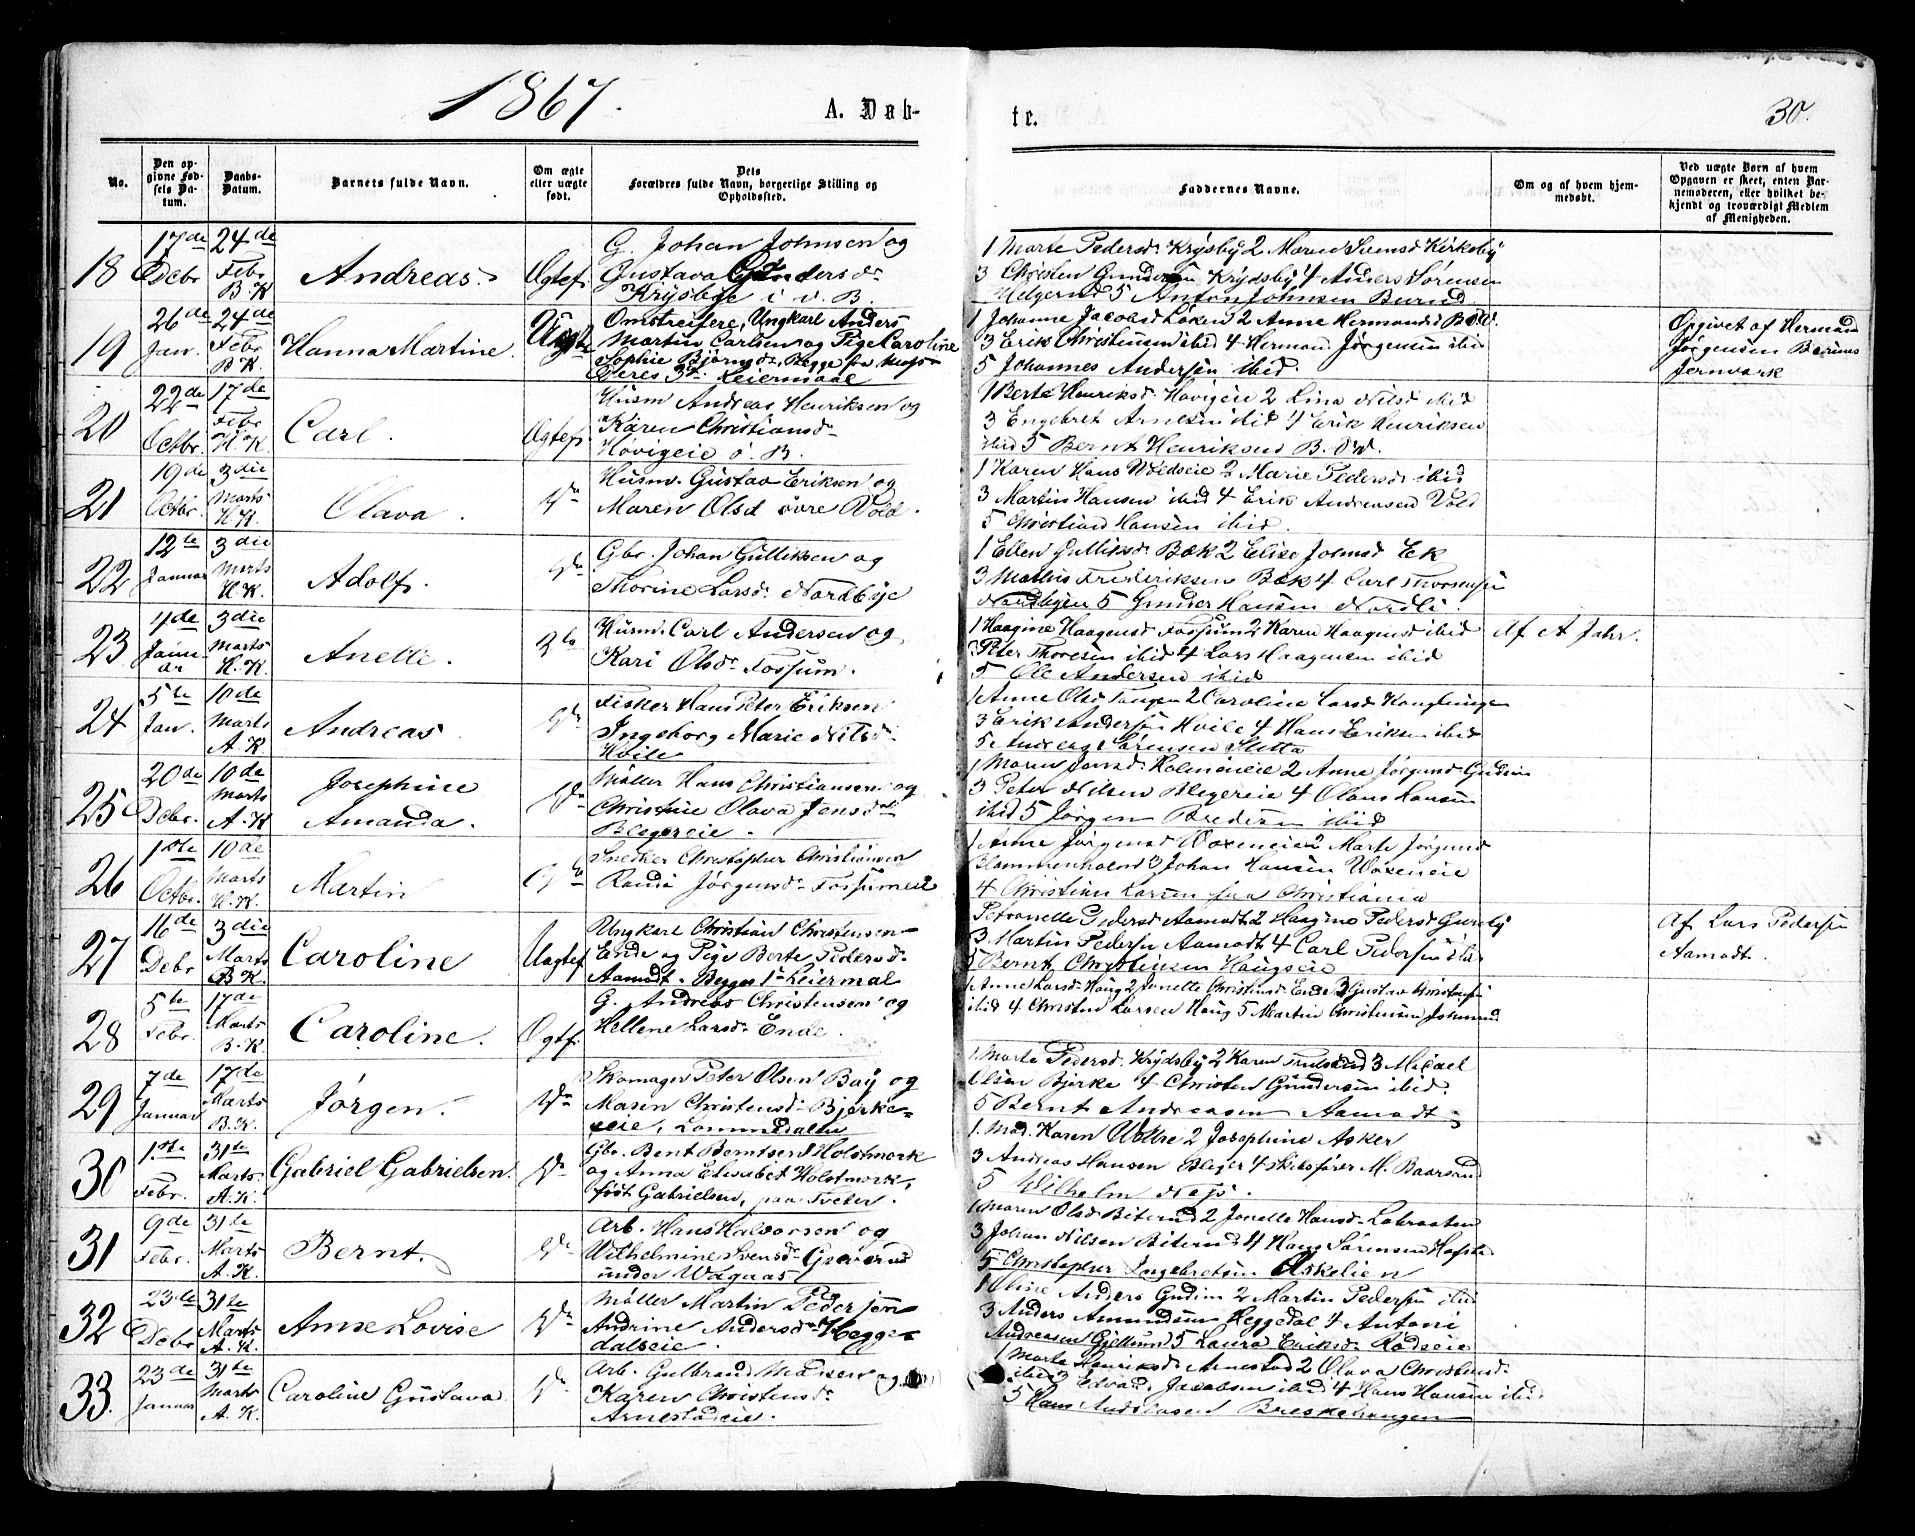 1867.
A. Døb-
te.
30.
No.
Den opgivne Fødsels Datum.
Daabs-Datum.
Barnets fulde Navn.
Om ægte eller uægte født.
Dets Forældres fulde Navn, borgerlige Stilling og Opholdssted.
Faddernes Navne.
Om og af hvem hjemmedøbt.
Ved uægte Børn af hvem Opgaven er skeet, enten Barnemoderen, eller hvilket bekjendt og troværdigt Medlem af Menigheden.
18 17de Debr 24de Febr B.K Andreas. Ægtef. G. Johan Johnsen og
Gustava Gundersdr
Krydsbye i v. B.
1 Marte Pedersdr Krydsby 2 Maren Svensd Kirkeby
3 Christen Gundersen Krydsby 4 Anders Sørensen
Helgerud 5 Anton Johnsen Burud
19 26de Jan. 24de Febr B.K. Hanna Martine. Uægte Omstreifere, Ungkarl Anders
Martin Carlsen og Pige Caroline
Sophie Bjørnsdr Begge fra
Deres 3die Leiermaal
1 Johanne Jacobsd Løken 2 Anne Hermansd B.V.
3 Erik Christensen ibid 4 Herman Jørgensen ibid
5 Johannes Andersen ibid.
Opgivet af Herman
Jørgensen Bærums
Jernværk
20 22de Octbr. 17de Febr H.K. Carl. Ægtef. Husm Andreas Henriksen og
Karen Christiansdr
Høvigeie ø. B.
1 Berte Henriksdr Høvigeie 2 Lina Nilsd ibid
3 Engebret Arnesen ibid 4 Erik Henriksen
ibid 5 Bernt Henriksen B.V.
21 19de Octbr. 3die Marts H.K. Olava. Do Husm. Gustav Eriksen og
Maren Olsd øvre Vold.
1 Karen Hans Voldseie 2 Marie Pedersd ibid
3 Martin Hansen ibid 4 Erik Andreasen Vold
5 Christian Hansen ibid.
22 12te Januar 3die Marts H.K. Adolf. Do Gbr. Johan Gulliksen og
Thorine Larsdr Nordbye
1 Ellen Gulliksdr Bæk 2 Elise Johnsd Ek
3 Mathis Frederiksen Bæk 4 Carl Thoresen
5 Gunder Hansen Nordli.
23 4de Januar 3die Marts H.K. Anette. Do Husm. Carl Andersen og
Kari Olsdr Fossum.
1 Haagine Haagensd Fossum 2 Karen Haagensd ibid
3 Peter Thoresen ibid 4 Lars Haagensen ibid
5 Ole Andersen ibid
Af A Jahr.
24 5te Jan. 10de Marts A.K. Andreas Do Fisker Hans Peter Eriksen
Ingeborg Marie Nilsdr
Hvile
1 Anne Olsd Tangen 2 Caroline Larsd Konglungen
3 Erik Andersen Hvile 4 Hans Eriksen ibid
5 Andreas Sørensen Sletta
25 20de Debr. 10de Marts A.K Josephine
Amanda. Do Møller Hans Christiansen og
Christine Olava Jensdr
Blegereie.
1 Maren Jensdr Holmeneie 2 Anne Jørgensd Gudim
3 Peter Nilsen Blegereie 4 Olaus Hansen
ibid 5 Jørgen Bredesen ibid
26 1ste Octbr. 10de Marts H.K. Martin Do Snedker Christopher Christiansen
Randi Jørgensdr Fossumeie
1 Anne Jørgensd Voxeneie 2 Marte Jørgensd
Blommenholm 3 Johan Hansen Voxeneie
4 Christian Larsen fra Christiania
27 16de Debr 3die Marts B.K. Caroline Uægtef Ungkarl Christian Christensen
Ende og Pige Berte Pedersdr
Aamodt. Begges 1ste Leiermal
1 Petronelle Pedersd Aamodt 2 Haagine Pedersd Gureby
3 Martin Pedersen Aamodt 4 Carl Pedersen ibid
5 Bernt Christensen Haugseie
Af Lars Pedersen
Aamodt.
28 5te Febr. 17de Marts B.K. Caroline. Ægtef. G. Andreas Christensen og
Hellene Larsdr Ende.
1 Anne Larsd Haug 2 Jonette Christensd Ende 3 Gustav Christensen
ibid 4 Christen Larsen Haug 5 Martin Christensen Johnsrud
29 7de Januar 17de Marts B.K. Jørgen. Do Skomager Peter Olsen Bay og
Maren Christensdr Bjerke-
eie, Lommedalen
1 Marte Pedersdr Krydsby 2 Karen Trulsrud 3 Micael
Olsen Bjerke 4 Christen Gundersen ibid.
5 Bernt Andreasen Aamodt
30 1ste Febr. 31te Marts A.K. Gabriel Gabrielsen. Do Gbr. Bent Bentsen Holstmark
og Anna Elisabet Holstmark,
født Gabrielsen, paa Tveter.
1. Mad. Karen Wettre 2 Josephine Asker
3 Andreas Hansen Bleger 4 Skibsfører M. Baarsrud
5 Wilhelm Næs.
31 9de Febr. 31te Marts A.K. Bernt. Do Arb. Hans Halvorsen og
Wilhelmine Svensdr Graverud
under Vøgaas
1 Maren Olsd Biterud 2 Jonette Hansdr Labraaten
3 Johan Nilsen Biterud 4 Hans Sørensen Hofstad
5 Christopher Ingebretsen Askelien
32 23de Debr 31te Marts A.K. Anne Lovise Do Møller Martin Pedersen
Andrine Andersdr Hegge-
dalseie.
1 Oline Anders Gudim 2 Martin Pedersen ibid
3 Anders Amundsen Heggedal 4 Antoni
Andreasen Gjellum 5 Laura Eriksdr Rødseie
33. 23de Januar 31te Marts A.K. Caroline Gustava. Do Arb. Gulbrand Madsen og
Karen Christensdr
Arnestadeie.
1 Marte Henriksdr Arnestad 2 Olava Christensd
ibid 3 Edvard Jacobsen ibid 4 Hans Hansen ibid
5 Hans Andreasen Breskehaugen